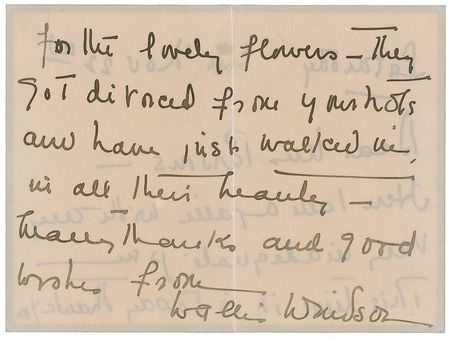 for the lovely flowers — They
got divorced from your note
and have just walked in,
in all their beauty —
Many thanks and good
wishes from
Wallis Windsor